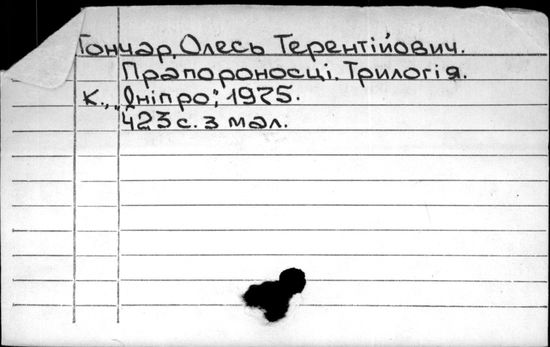 Гончар, Олесь Терентійович.
Прапороносці. Трилогія.
К., „Дніпро", 1975.
423 с. з мал.